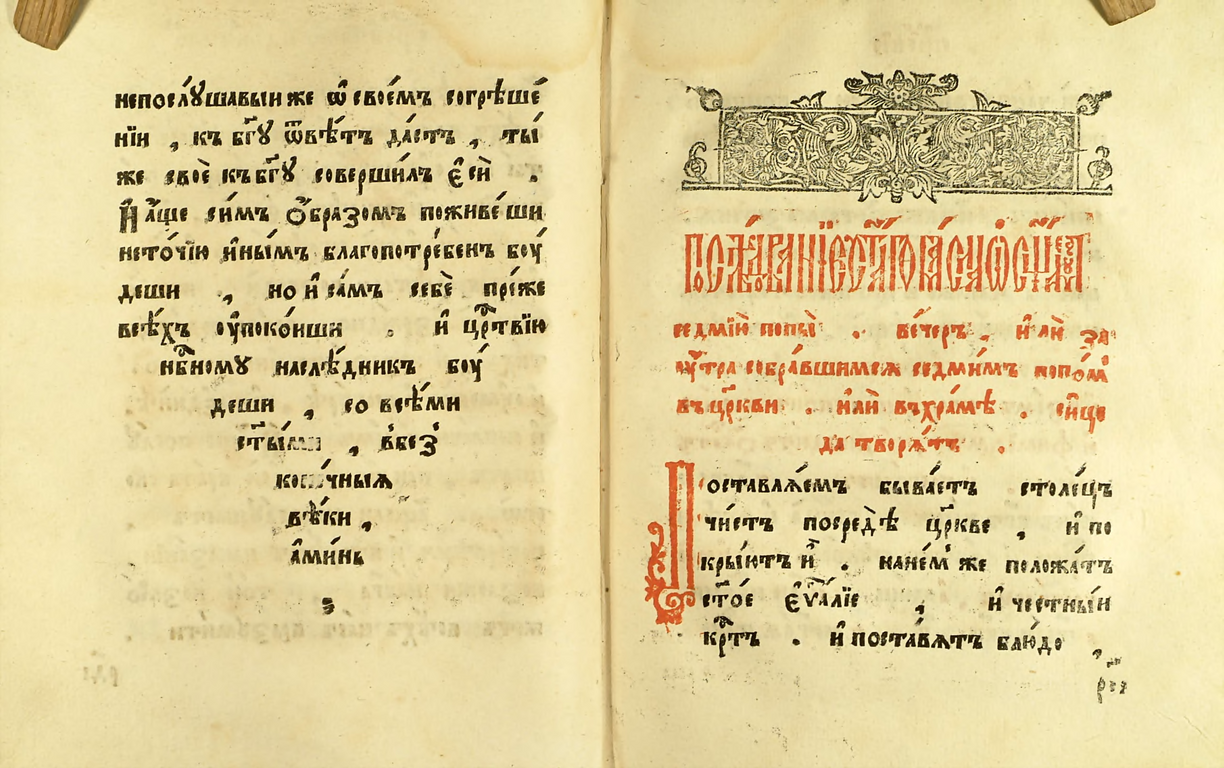 непослꙋ́шавыи же ѡ҆ свое́мъ согрѣше́
нїи , къ бг҃ꙋ ѿвѣ́тъ да́стъ , ты́
же своѐ къ бг҃ꙋ соверши́лъ є҆сѝ .
И҆ а҆́ще си́мъ ѻ҆́бразомъ поживе́ши
неточі́ю и҆ны́мъ благопотре́бенъ боу́
деши , но и҆ са́мъ себѐ пре́же
всѣ́хъ оу҆поко́иши . и҆ црⷭ҇твїю
нбⷭ҇номꙋ наслѣ́дникъ боу́
деши , со всѣ́ми
ст҃ы́ми , в̾без̾
коне́чныѧ
вѣ́ки ,
а҆ми́нь
послѣ́дованїе ст҃а́гѡ ма́сла ѡ҆сщ҃а́ем
седмїю̀ попы̀ . ве́черъ , и҆лѝ за
ꙋ҆́тра собра́вшимсѧ седми́мъ попо́мⸯ
въ цр҃кви . и҆лѝ въ хра́мѣ . си́це
да творѧ́тъ .
Поставлѧ́емъ быва́етъ столе́цъ
чи́стъ посредѣ̀ цр҃кве , и҆ по
кры́ютъ и҆̀ . на не́м же положа́тъ
ст҃о́е є҆ѵⷢ҇лїе , и҆ честны́и
крⷭ҇тъ . и҆ поста́вѧтъ блю́до ,